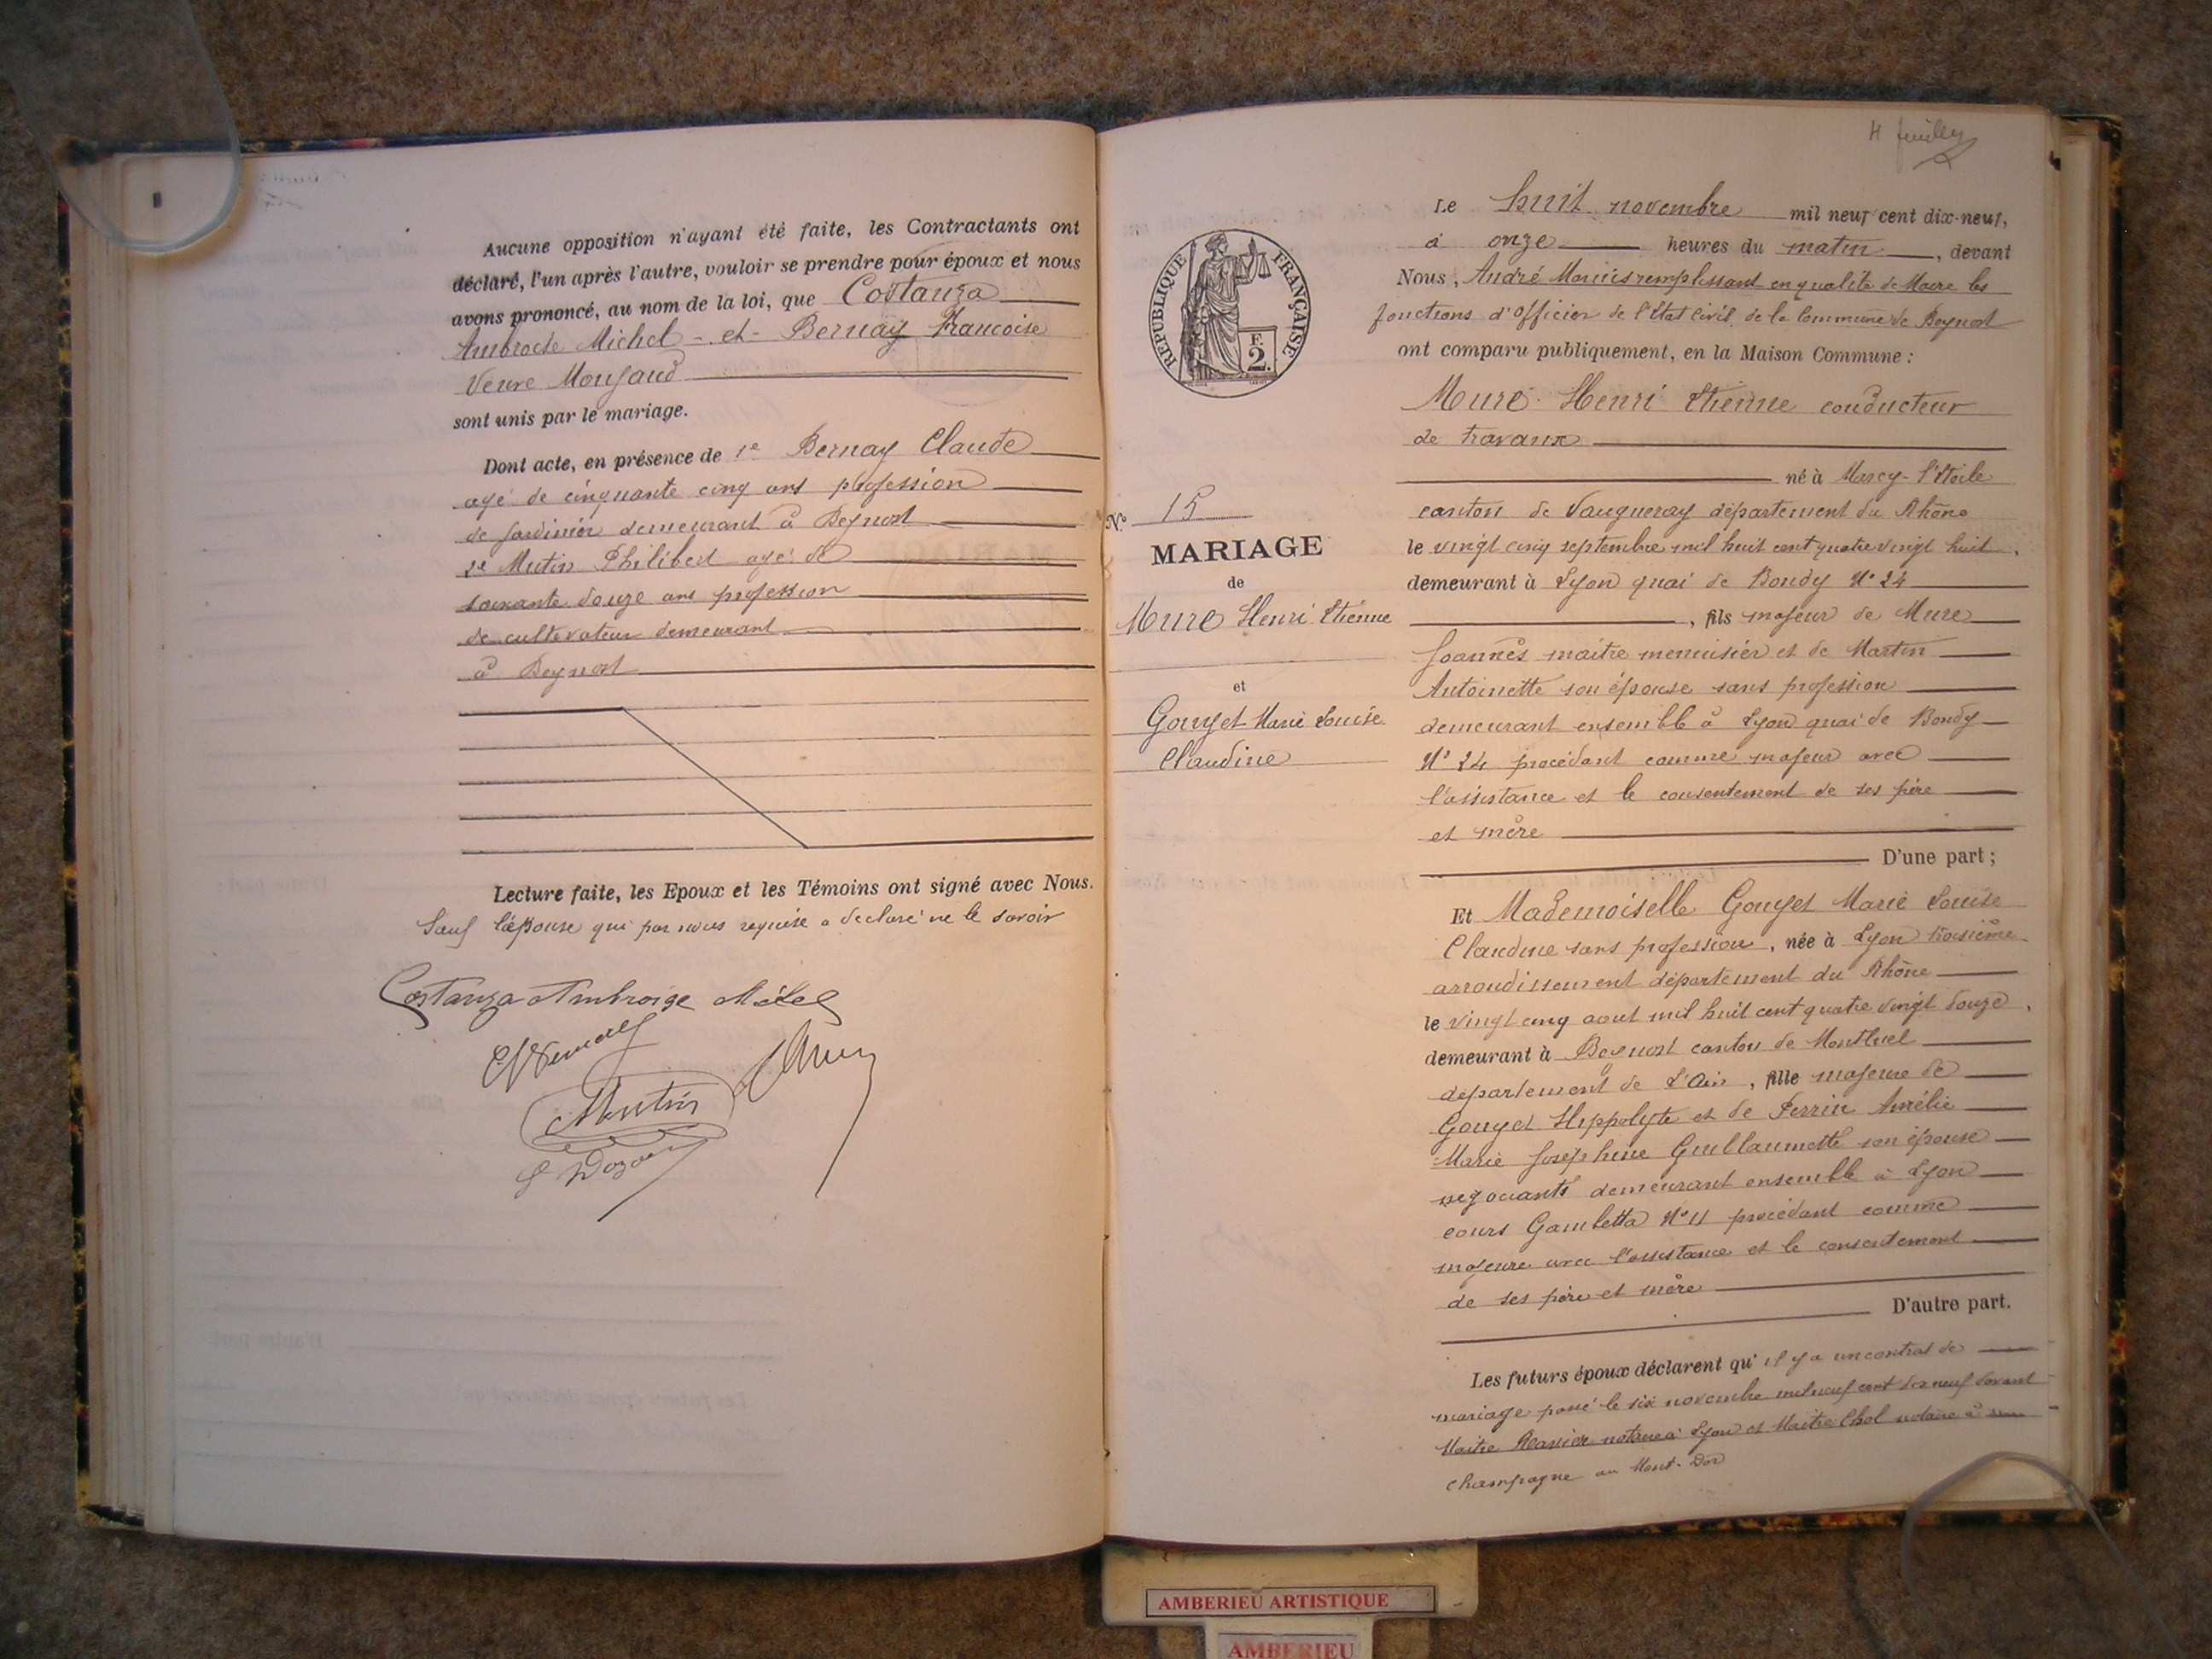 Aucune opposition n'ayant été faite, les Contractants ont
déclaré, l'un après l'autre, vouloir se prendre pour époux et nous
avons prononcé, au nom de la loi, que Costanza
Ambroise Michel - et - Bernay Francoise
Veuve Mougaud
sont unis par le mariage.
Dont acte, en présence de 1e Bernay Claude
agé de cinquante cinq ans profession
de Jardinier demeurant à Beynost
2e Mutin Philibert agé de
soixante douze ans profession
de cultivateur demeurant
à Beynost
Lecture faite, les Epoux et les Témoins ont signé avec Nous.
Sauf l'épouse qui par nous requise a declaré ne le savoir
Costanza Ambroise
Mutin
4 feuillet
Le huit novembre mil neuf cent dix-neuf,
à onze heures du matin, devant
Nous, André Marius remplissant en qualité de Maire les
fonctions d'officier de l'Etat Civil de la Commune de Beynost
ont comparu publiquement, en la Maison Commune :
Mure Henri Etienne conducteur
de travaux
né à Marcy-l'Etoile
canton de Vaugneray département du Rhône
le vingt cinq septembre mil huit cent quatre vingt huit,
demeurant à Lyon quai de Bondy N° 24
, fils majeur de Mure
Joannès maitre menuisier et de Martin
Antoinette son épouse sans profession
demeurant ensemble à Lyon quai de Bondy
N° 24 procédant comme majeur avec
l'assistance et le consentement de ses père
et mère
D'une part ;
Et Mademoiselle Gouget Marie Louise
Claudine sans profession, née à Lyon troisième
arrondissement département du Rhône
le vingt cinq aout mil huit cent quatre vingt douze,
demeurant à Beynost canton de Montluel
département de L'Ain, fille majeure de
Gouget Hippolyte et de Perrin Amélie
Marie Joséphine Guillaumette son épouse
negociants demeurant ensemble à Lyon
cours Gambetta N° 11 procédant comme
majeure avec l'assistance et le consentement
de ses père et mère
D'autre part.
Les futurs époux déclarent qu'il y a un contrat de
mariage passé le six novembre mil neuf cent dix neuf devant
Maitre notaire à Lyon et Maitre Chol notaire à
Champagne au Mont-Dor
RÉPUBLIQUE FRANÇAISE
F.
2.
N° 15
MARIAGE
de
Mure Henri Etienne
et
Gouget Marie Louise
Claudine
AMBERIEU ARTISTIQUE
AMBERIEU